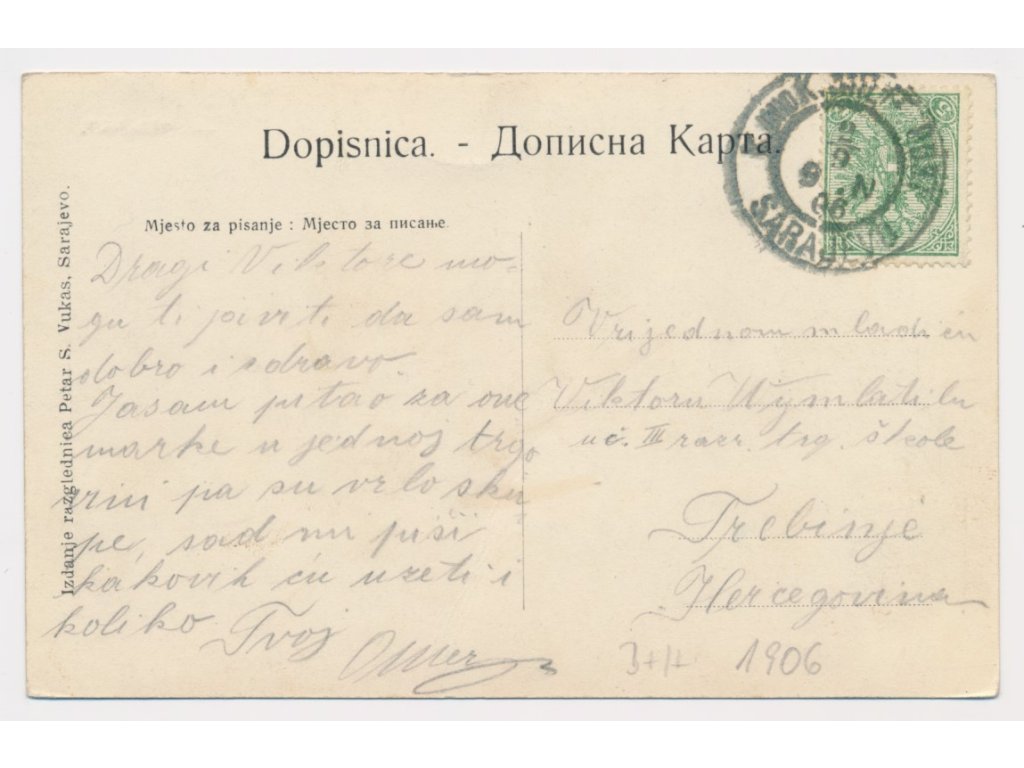 Dopisnica. - Дописна Карта.
Mjesto za pisanje : Мјесто за писање.
Izdanje razglednica Petar S. Vukas, Sarajevo.
Dragi Viktore mo-
gu ti javiti da sam
dobro i zdravo.
Ja sam pitao za one
marke u jednoj trgo
vini pa su vrlo sku
pe, sad mi piši
kakovih ću uzeti i
koliko. Tvoj
Omer
Vrijednom mladiću
Viktoru
uč. III razr. trg. škole
Trebinje
Hercegovina
1906
5
SARAJEVO